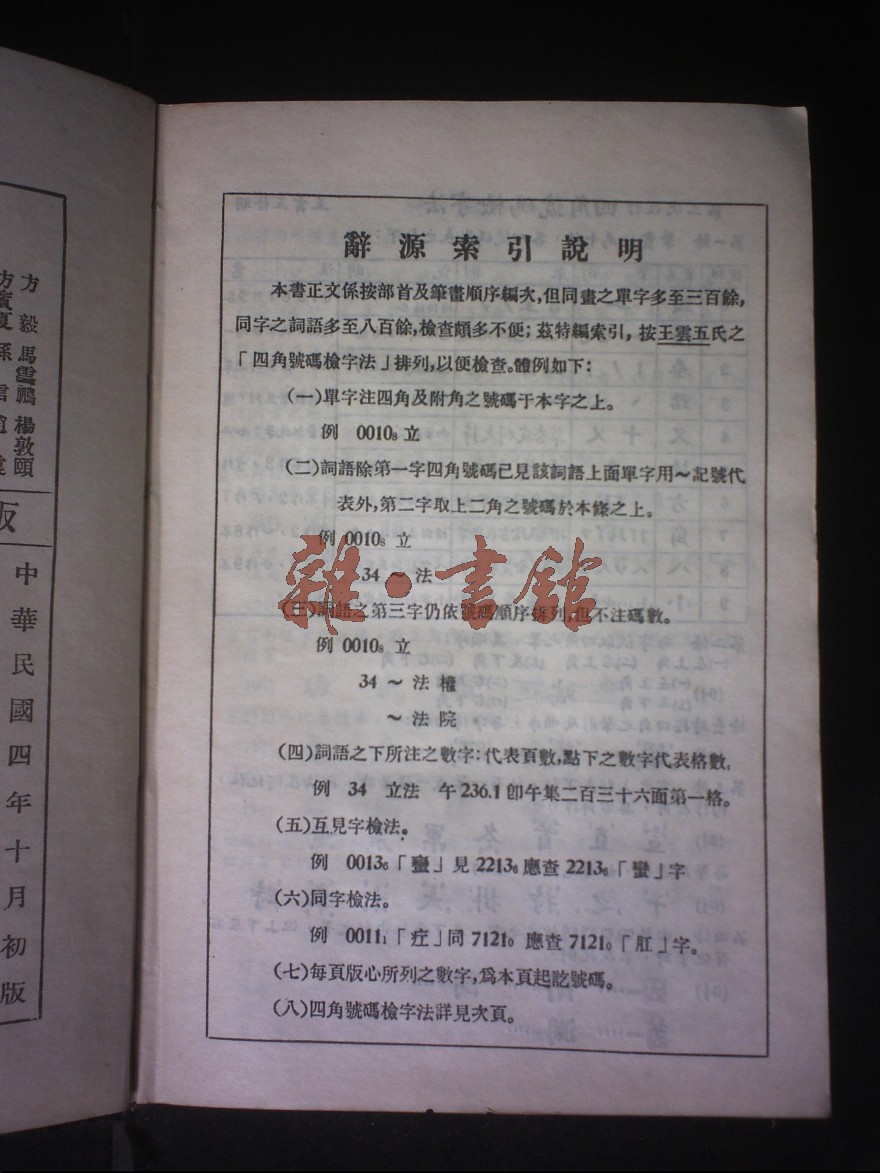 辭源索引說明
本書正文係按部首及筆畫順序編次，但同畫之單字多至三百餘，
同字之詞語多至八百餘，檢查頗多不便；茲特編索引，按王雲五氏之
「四角號碼檢字法」排列，以便檢查。體例如下：
（一）單字注四角及附角之號碼于本字之上。
例 0010₈ 立
（二）詞語除第一字四角號碼已見該詞語上面單字用～記號代
表外，第二字取上二角之號碼於本條之上。
例 0010₈ 立
34 ～法
（三）詞語之第三字仍依號碼順序排列，但不注碼數。
例 0010₈ 立
34 ～法權
～法院
（四）詞語之下所注之數字：代表頁數，點下之數字代表格數，
例 34 立法 午236.1 卽午集二百三十六面第一格。
（五）互見字檢法。
例 0013₆「蠒」見 2213₆ 應查 2213₆「蠻」字
（六）同字檢法。
例 0011₁「疘」同 7121₀ 應查 7121₀「肛」字。
（七）每頁版心所列之數字，爲本頁起訖號碼。
（八）四角號碼檢字法詳見次頁。
雜·書館
方毅 馬雲鵬 楊敦頤
方賓夏 孫
版
中華民國四年十月初版